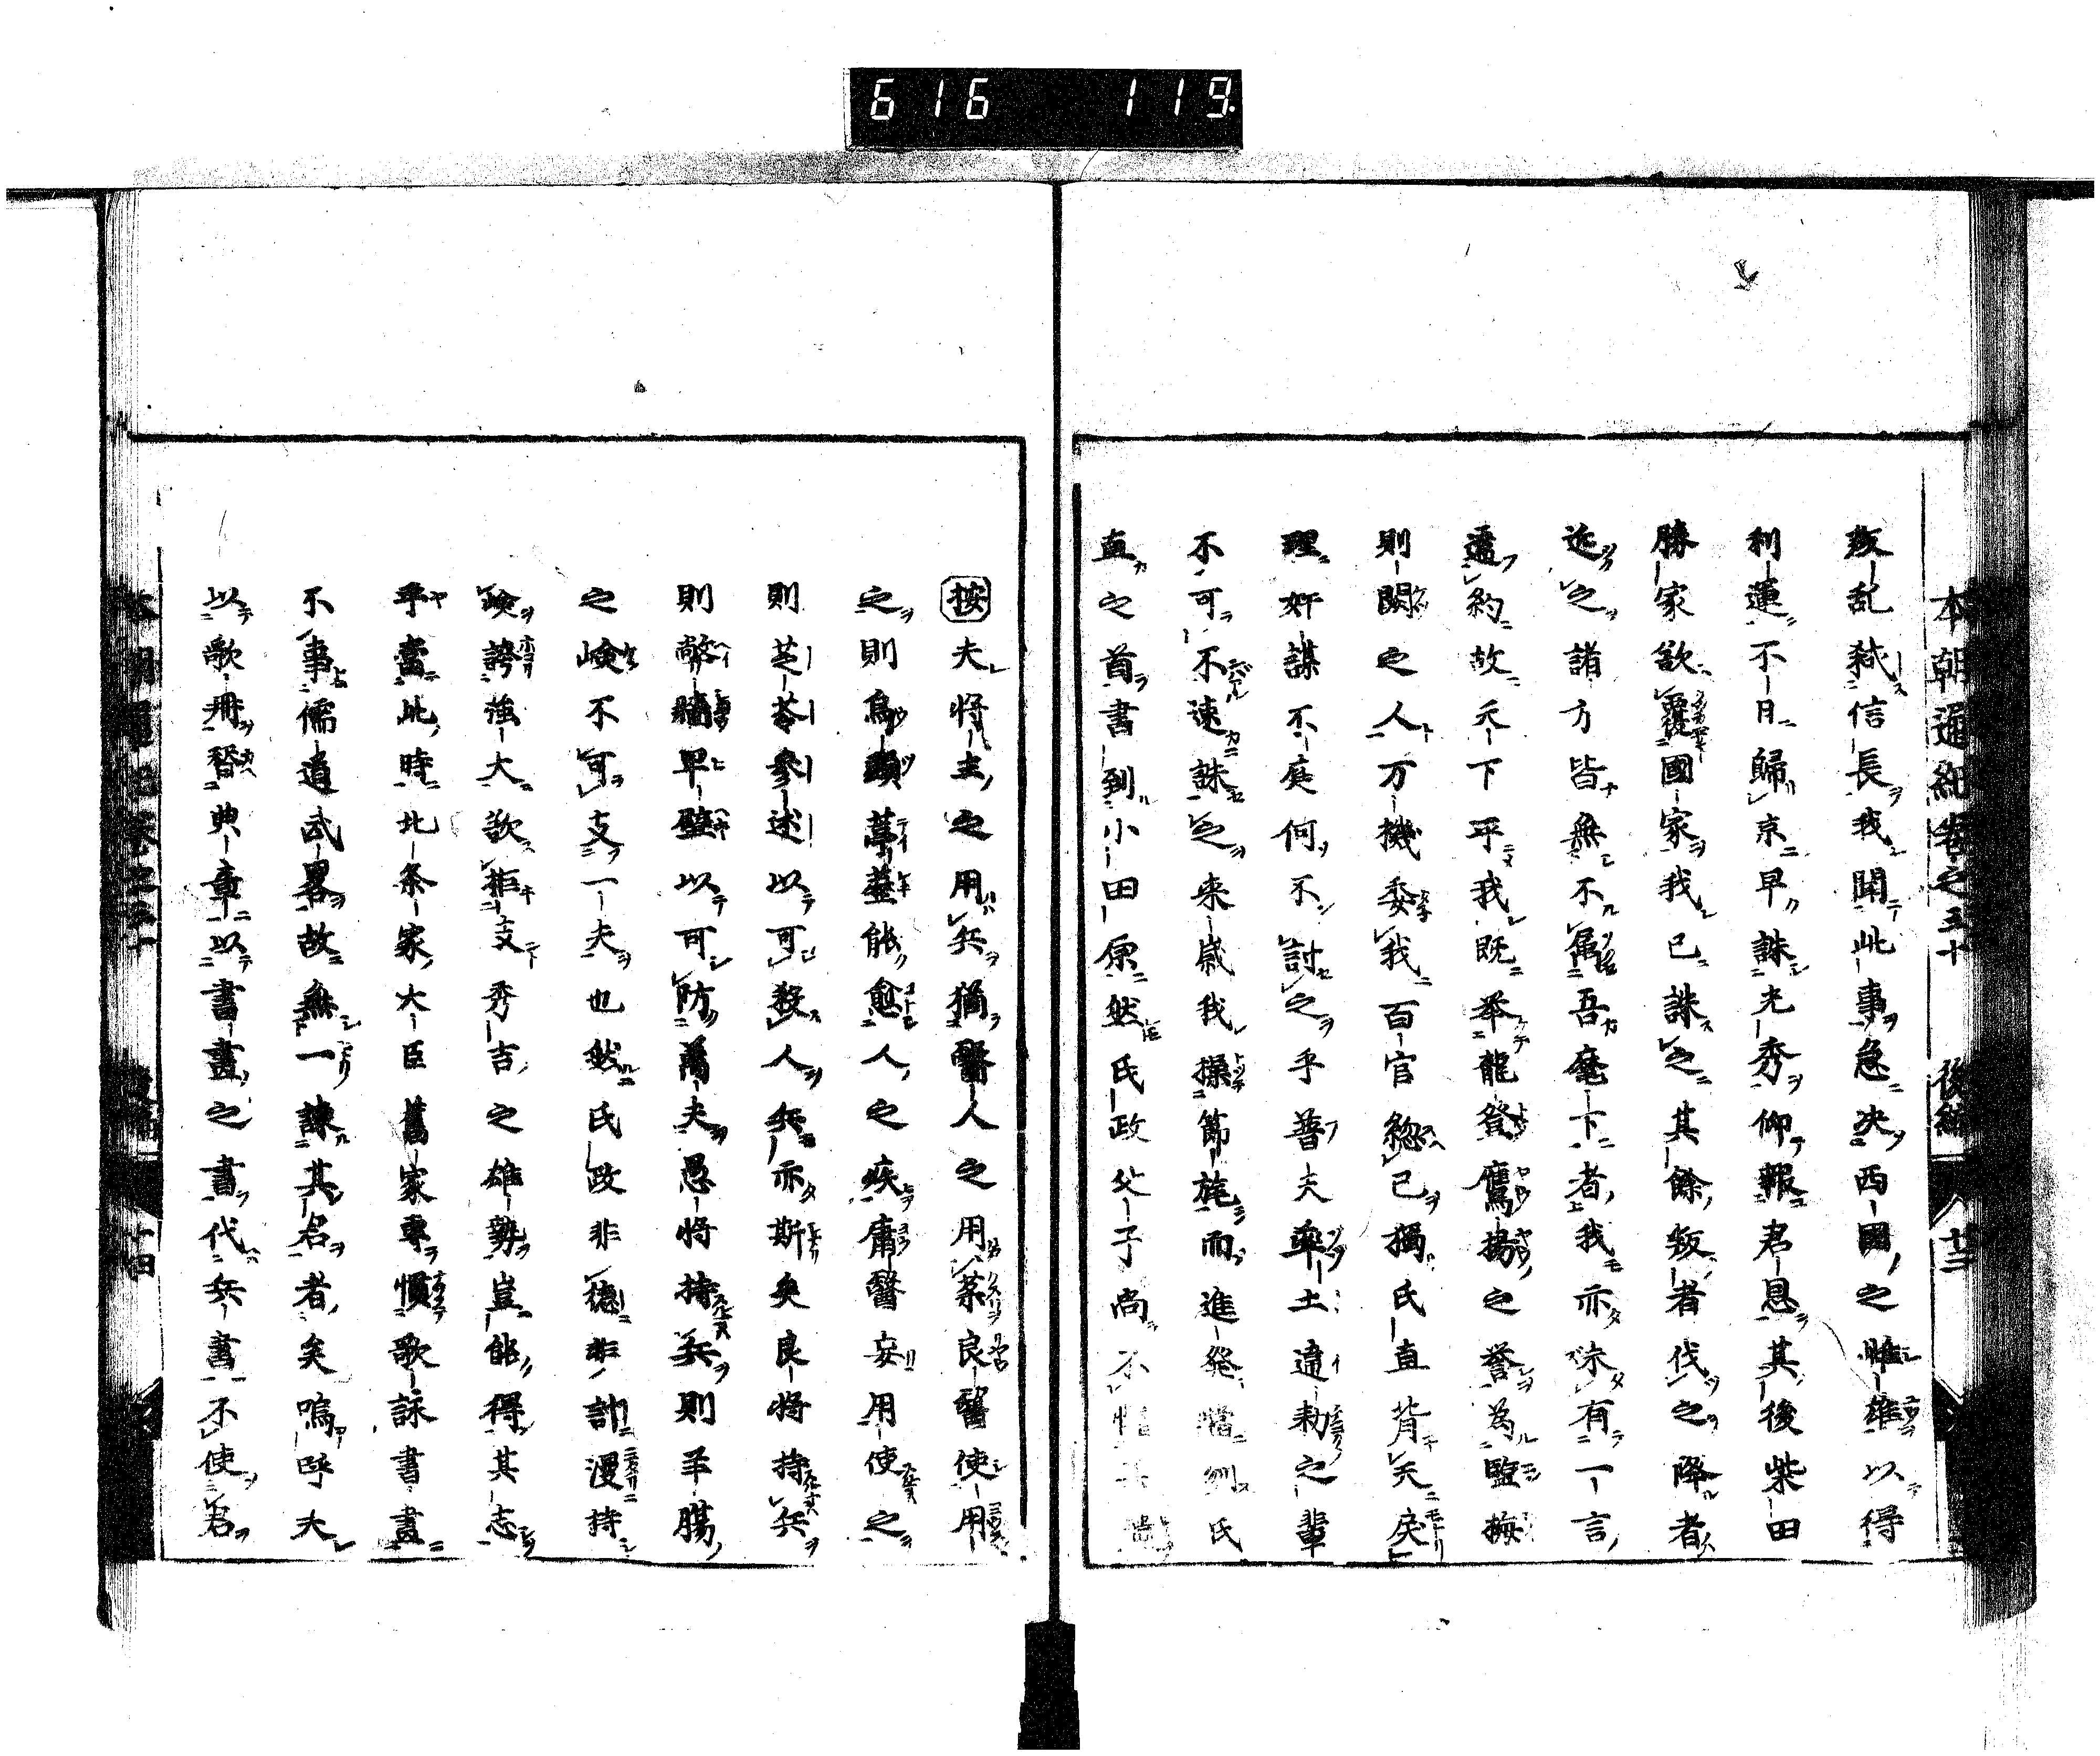 616 119
本朝通紀卷之五十 後編 八 廿三
叛乱弑信長我聞此事急决西國之雌雄以得
利運不日歸京早誅光秀仰報君恩其後柴田
勝家欲覆國家我已誅之其餘叛者伐之降者
近之諸方皆無不属吾麾下者我亦未有一言
違約故天下平我既举龍登鷹揚之誉為鹽梅
則闕之人万機委我百官総己獨氏直背天戾
理奸謀不庭何不討之乎普天率土違勅之輩
不可不速誅之来歲我操節旄而進發當刎氏
直之首書到小田原然氏政父子尚不
按夫將主之用兵猶醫人之用藥良醫使用
之則烏頭葶藶能愈人之疾庸醫妄用使之
則芝苓參述以可殺人兵亦斯矣良將持兵
則幣牆卑壁以可防萬夫愚将持兵則羊膓
之嶮不可支一夫也然氏政非德非計漫持
嶮誇強大欲拒支秀吉之雄勢豈能得其志
乎當此時北条家大臣舊家專慣歌詠書畫
不事儒道武畧故無一諌其君者矣嗚呼夫
以歌册替典章以書畫之書代兵書不使君